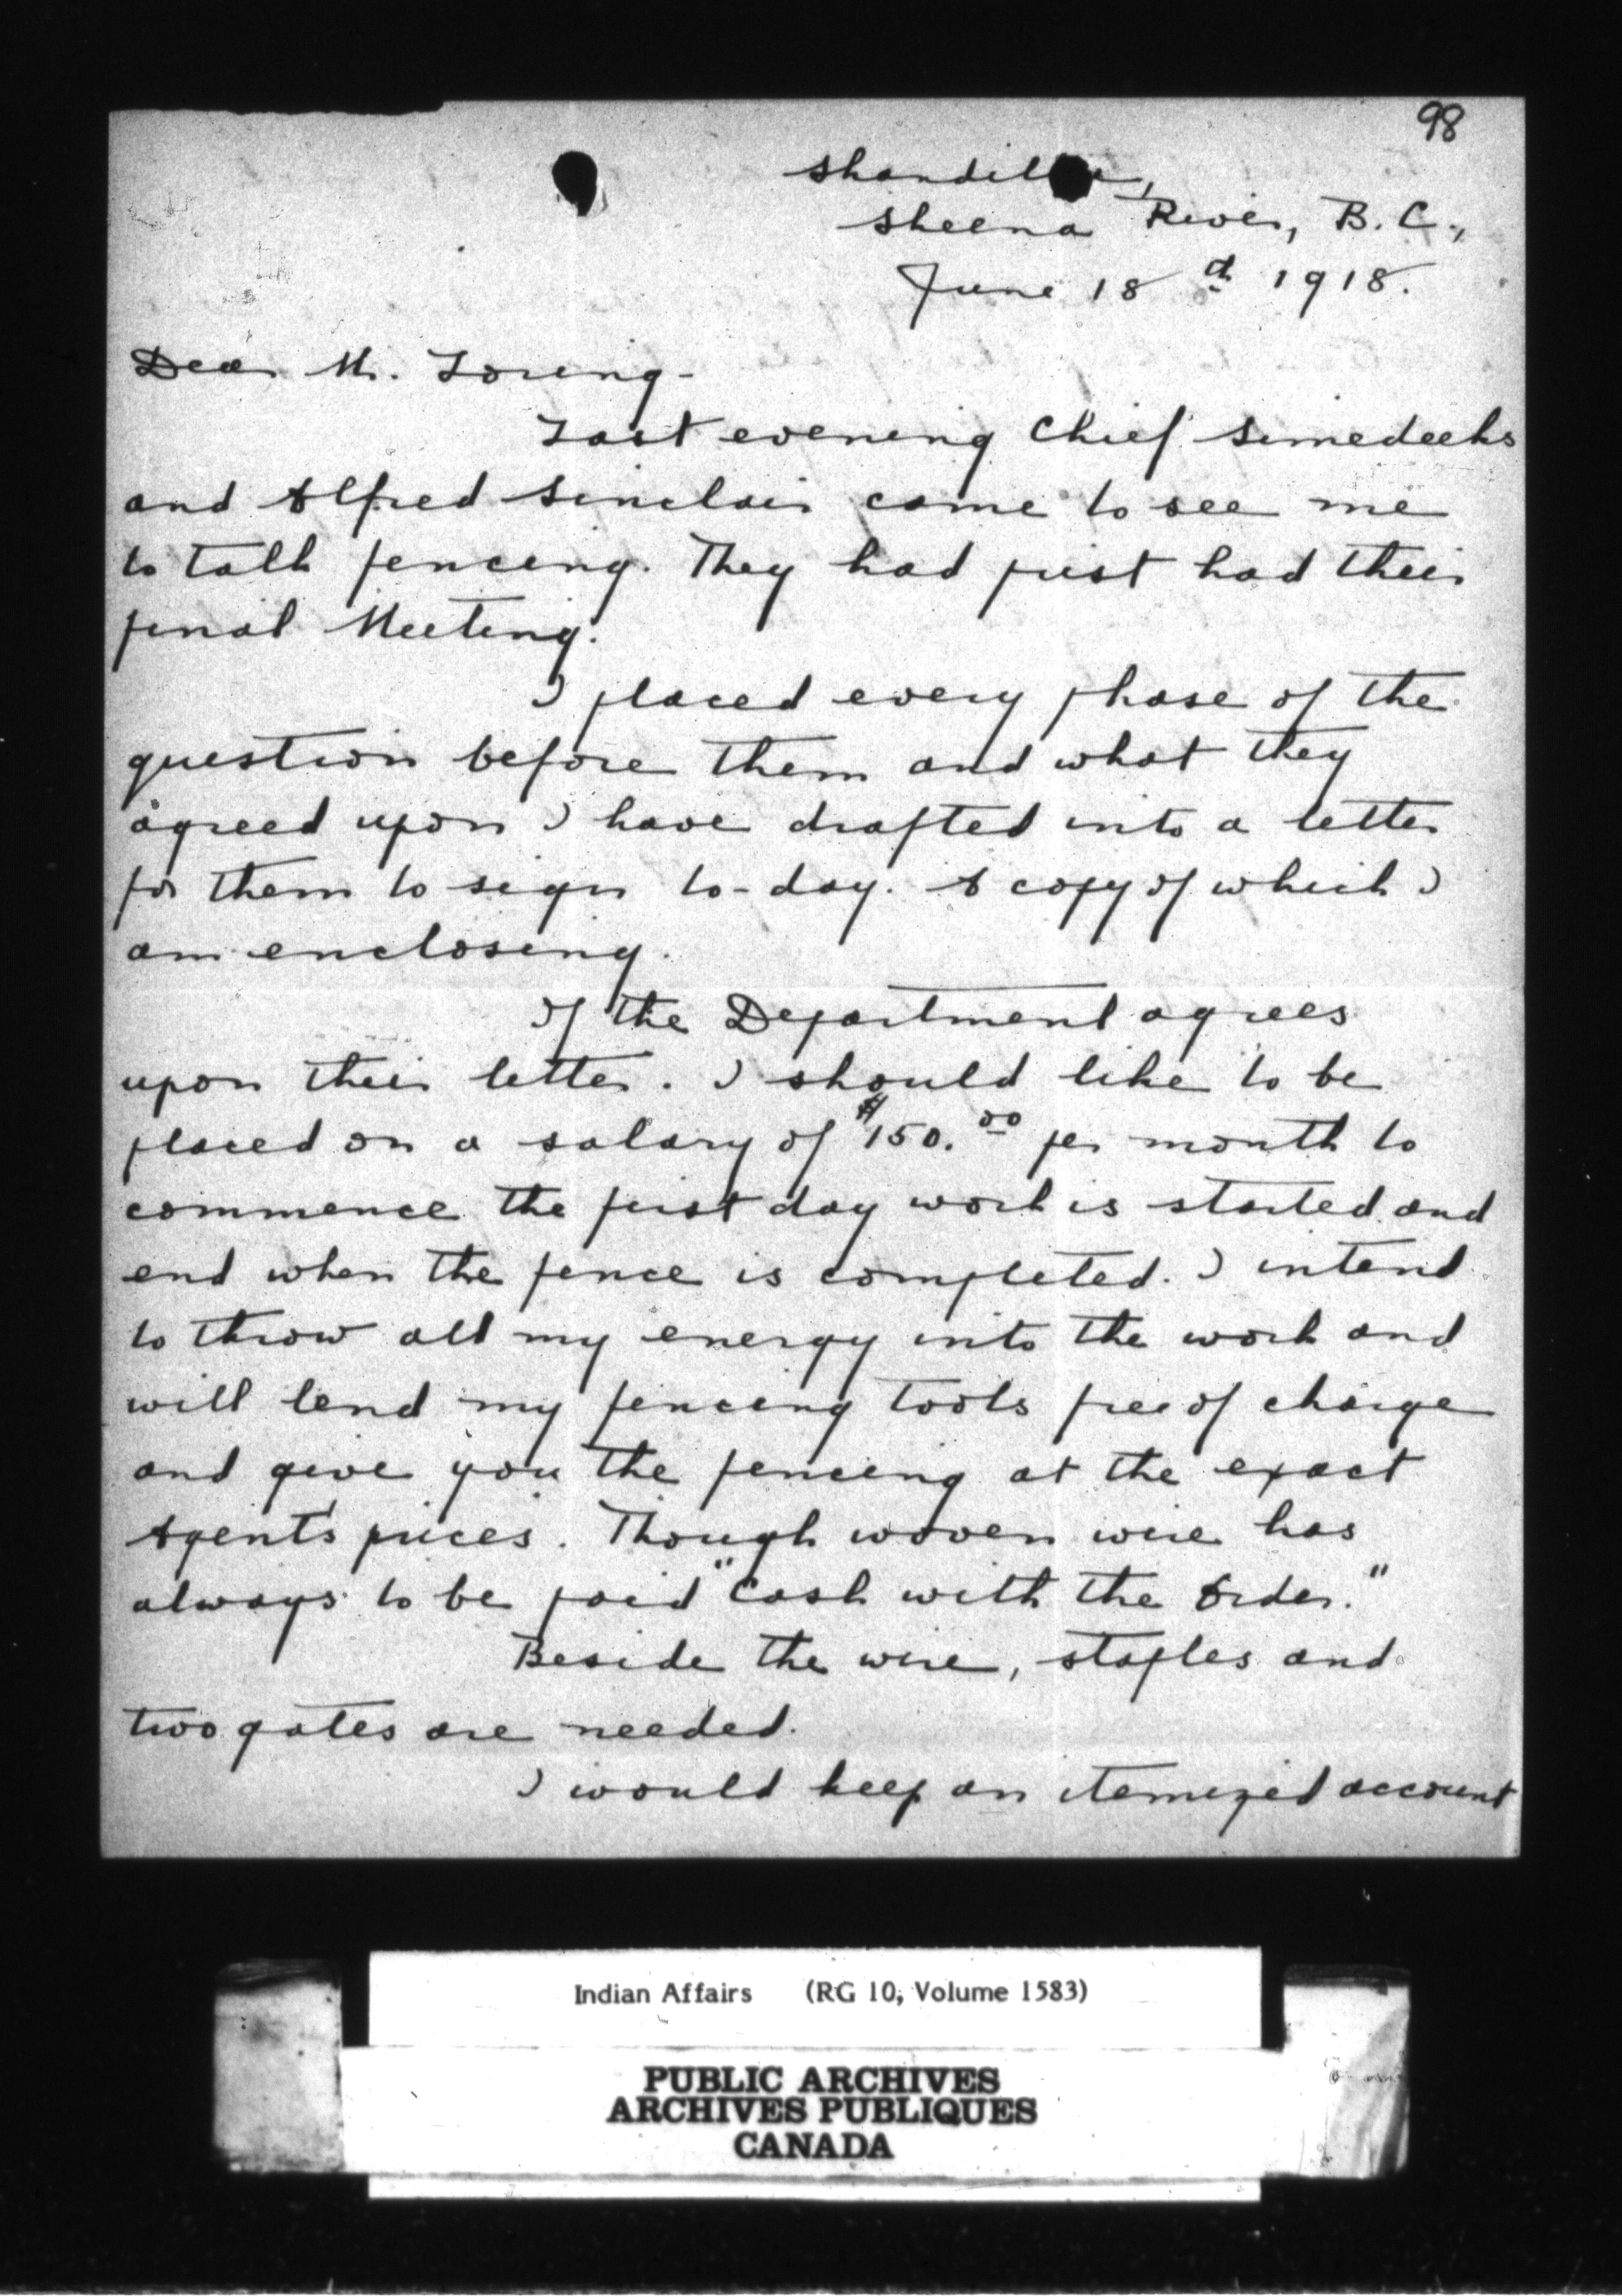 98
Shandilla,
Skeena River, B.C.,
June 18th 1918.
Dear Mr. Loring-
Last evening Chief Simedeeks
and Alfred Sinclair came to see me
to talk fencing. They had just had their
final Meeting.
I placed every phase of the
question before them and what they
agreed upon I have drafted into a letter
for them to sign to-day. A copy of which I
am enclosing.
If the Department agrees
upon their letter. I should like to be
placed on a salary of $150.00 per month to
commence the first day work is started and
end when the fence is completed. I intend
to throw all my energy into the work and
will lend my fencing tools free of charge
and give you the fencing at the exact
Agent's prices. Though woven wire has
always to be paid "Cash with the Order."
Beside the wire, staples and
two gates are needed.
I would keep an itemized account
Indian Affairs (RG 10, Volume 1583)
PUBLIC ARCHIVES
ARCHIVES PUBLIQUES
CANADA